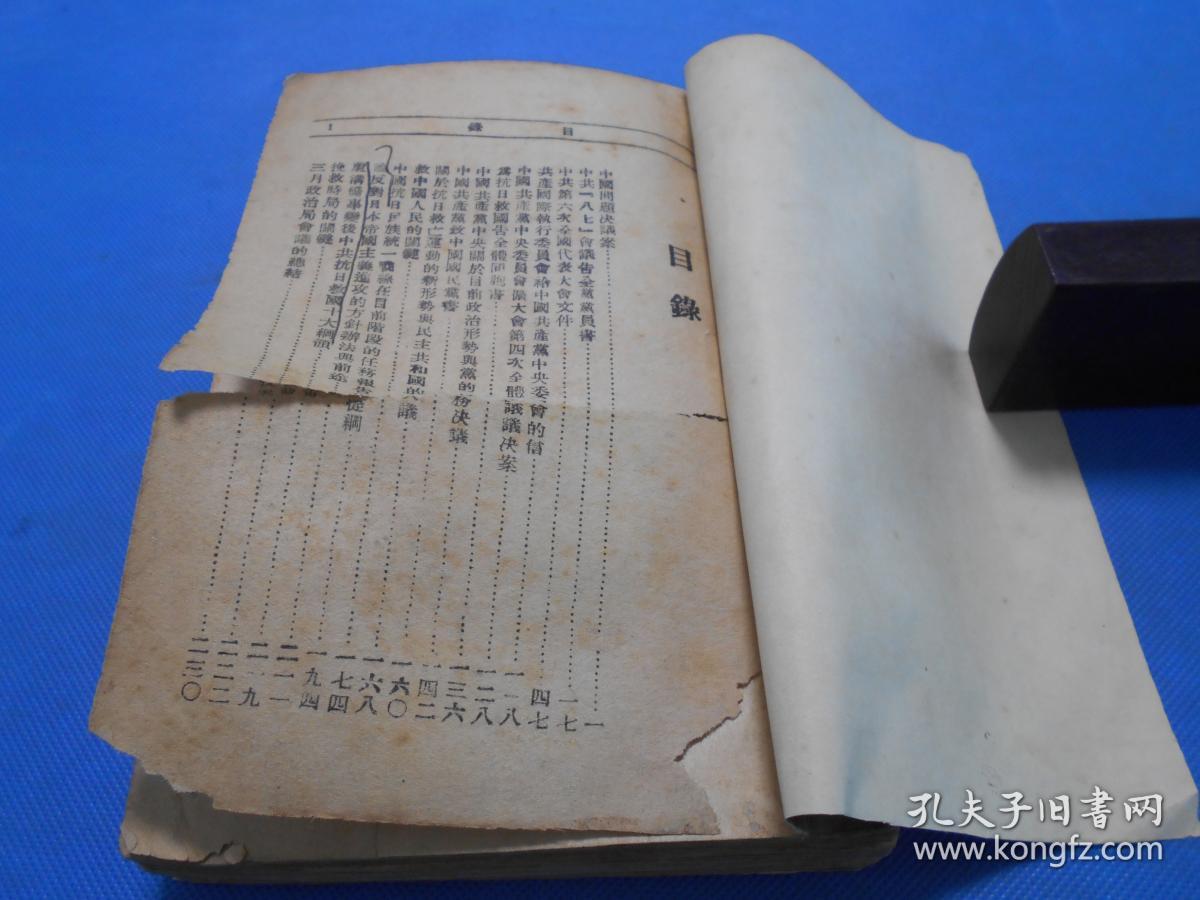 目錄
1
目錄
中國問題決議案……一
中共「八七」會議告全黨黨員書……一七
中共第六次全國代表大會文件……四七
共產國際執行委員會給中國共產黨中央委會的信
中國共產黨中央委員會擴大會第四次全體議議決案
爲抗日救國告全體同胞書
中國共產黨中央關於目前政治形勢與黨的務決議
中國共產黨致中國國民黨書
關於抗日救亡運動的新形勢與民主共和國的議
救中國人民的關鍵
中國抗日民族統一戰線在目前階段的任務報告
反對日本帝國主義進攻的方針辦法與前途
盧溝橋事變後中共抗日救國十大綱領
挽救時局的關鍵
三月政治局會議的總結
孔夫子旧书网
www.kongfz.com